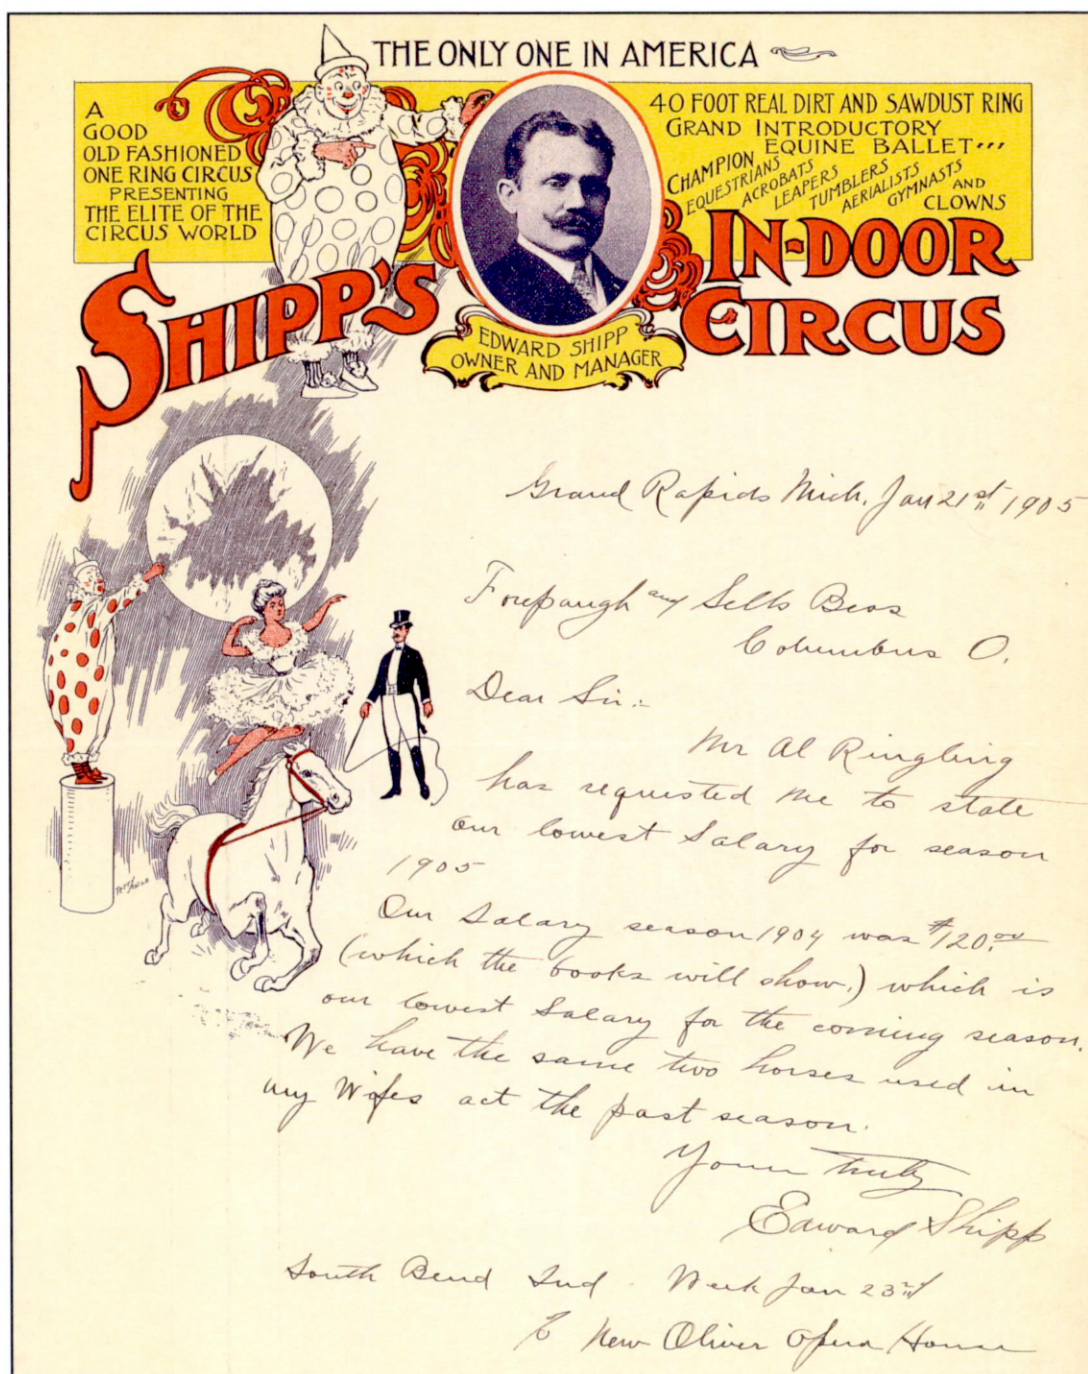 THE ONLY ONE IN AMERICA
A
GOOD
OLD FASHIONED
ONE RING CIRCUS
PRESENTING
THE ELITE OF THE
CIRCUS WORLD
40 FOOT REAL DIRT AND SAWDUST RING
GRAND INTRODUCTORY
EQUINE BALLET...
CHAMPION
EQUESTRIANS
ACROBATS
LEAPERS
TUMBLERS
AERIALISTS
GYMNASTS
AND
CLOWNS
SHIPP'S
IN-DOOR
CIRCUS
EDWARD SHIPP
OWNER AND MANAGER
Grand Rapids Mich, Jan 21st 1905
Forepaugh and Sells Bros
Columbus O.
Dear Sir:-
Mr Al Ringling
has requested me to state
our lowest Salary for season
1905
Our Salary season 1904 was $120.00
(which the books will show.) which is
our lowest Salary for the coming season.
We have the same two horses used in
my Wifes act the past season.
Yours truly
Edward Shipp
South Bend Ind. Week Jan 23rd
% New Oliver Opera House